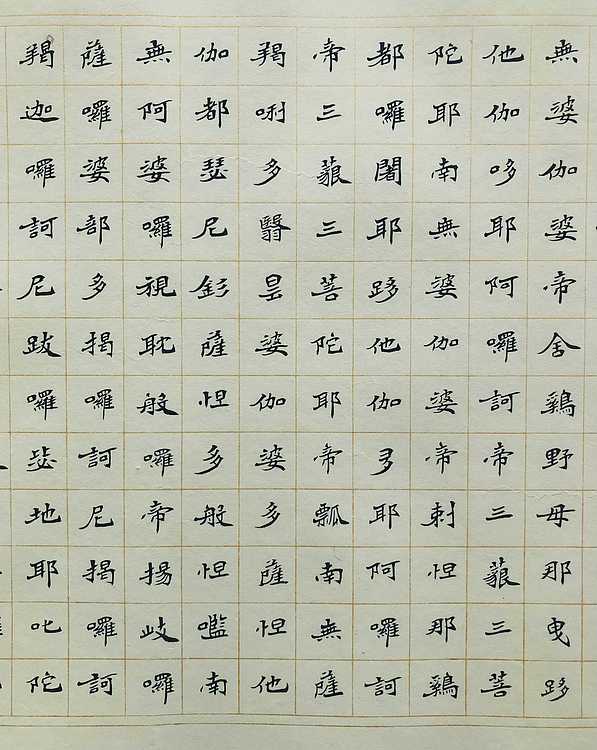 無婆伽婆帝舍鷄野母那曳跢
他伽哆耶阿囉訶帝三藐三菩
陀耶南無婆伽婆帝剌怛那鷄
都囉闍耶跢他伽多耶阿囉訶
帝三藐三菩陀耶帝瓢南無薩
羯唎多翳昙婆伽婆多薩怛他
伽都瑟尼釤薩怛多般怛囕南
無阿婆囉視耽般囉帝揚岐囉
薩囉婆部多揭囉訶尼揭囉訶
羯迦囉訶尼跋囉毖地耶叱陀